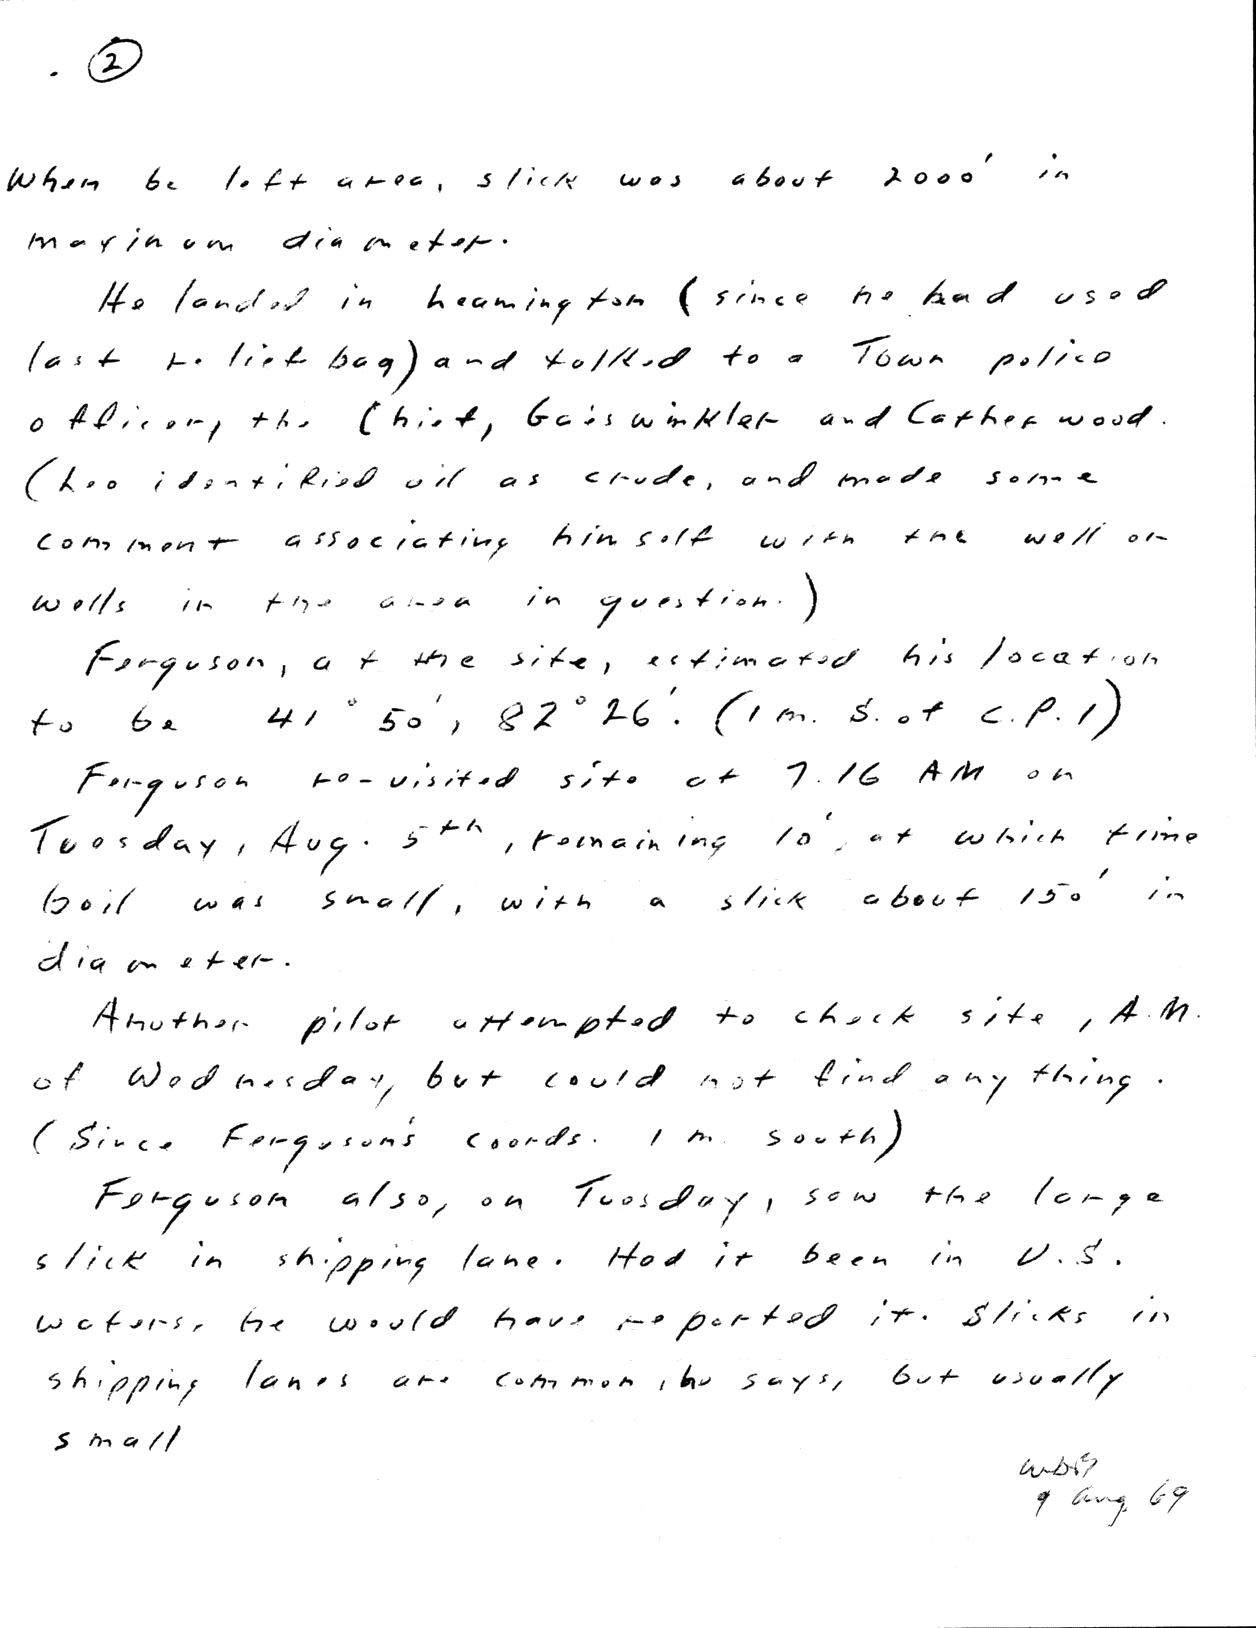 2
When he left area, slick was about 2000' in
maximum diameter.
He landed in Leamington (since he had used
last relief bag) and talked to a Town police
officer, the Chief, Gaiswinkler and Catherwood.
(Leo identified oil as crude, and made some
comment associating himself with the well or
wells in the area in question.)
Ferguson, at the site, estimated his location
to be 41° 50', 82° 26'. (1 m. S. of C.P. 1)
Ferguson re-visited site at 7.16 AM on
Tuesday, Aug. 5th, remaining 10', at which time
boil was small, with a slick about 150' in
diameter.
Another pilot attempted to check site, A.M.
of Wednesday, but could not find anything.
(Since Ferguson's coords. 1 m. south)
Ferguson also, on Tuesday, saw the large
slick in shipping lane. Had it been in U.S.
waters, he would have reported it. Slicks in
shipping lanes are common, he says, but usually
small
9 Aug 69